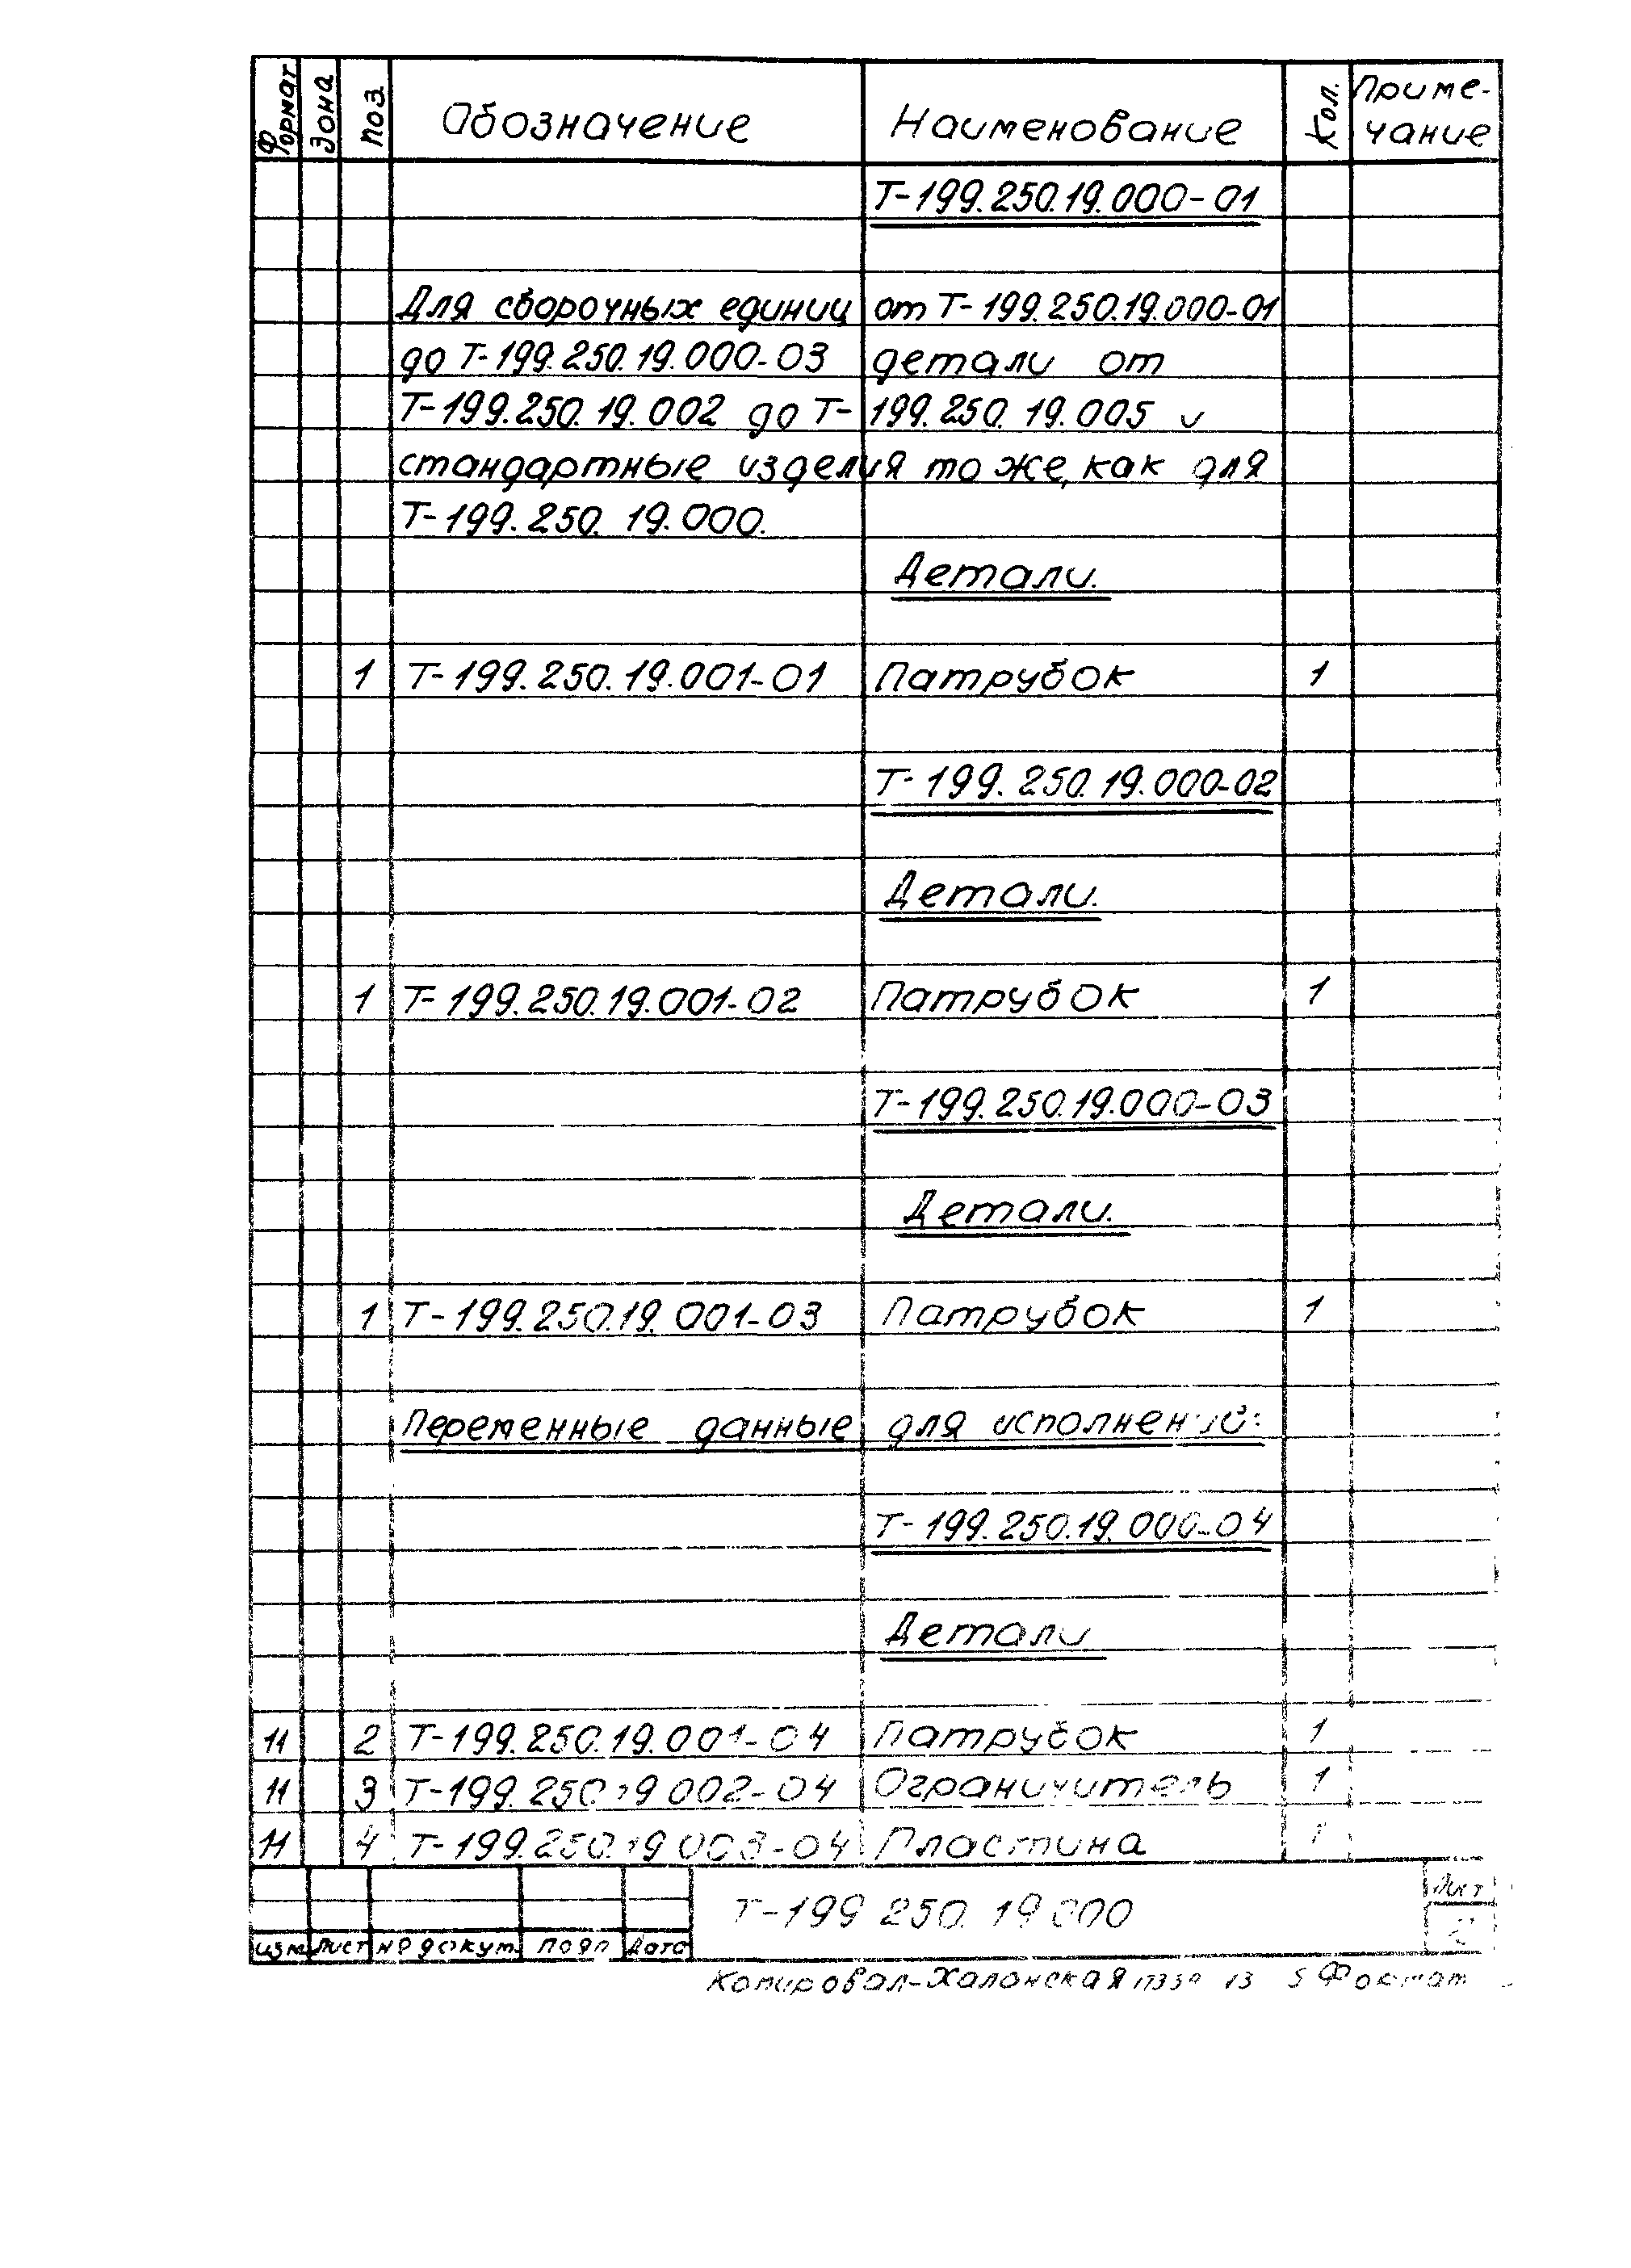 Формат Зона Поз. Обозначение Наименование Кол. Приме-
чание
Т-199.250.19.000-01
Для сборочных единиц от Т-199.250.19.000-01
до Т-199.250.19.000-03 детали от
Т-199.250.19.002 до Т-199.250.19.005 и
стандартные изделия то же, как для
Т-199.250.19.000.
Детали.
1 Т-199.250.19.001-01 Патрубок 1
Т-199.250.19.000-02
Детали.
1 Т-199.250.19.001-02 Патрубок 1
Т-199.250.19.000-03
Детали.
1 Т-199.250.19.001-03 Патрубок 1
Переменные данные для исполнений:
Т-199.250.19.000-04
Детали
11 2 Т-199.250.19.001-04 Патрубок 1
11 3 Т-199.250.19.002-04 Ограничитель 1
11 4 Т-199.250.19.003-04 Пластина 1
Т-199.250.19.000 Лист
2
Изм Лист № докум. Подп Дата
Копировал-Халонская Формат